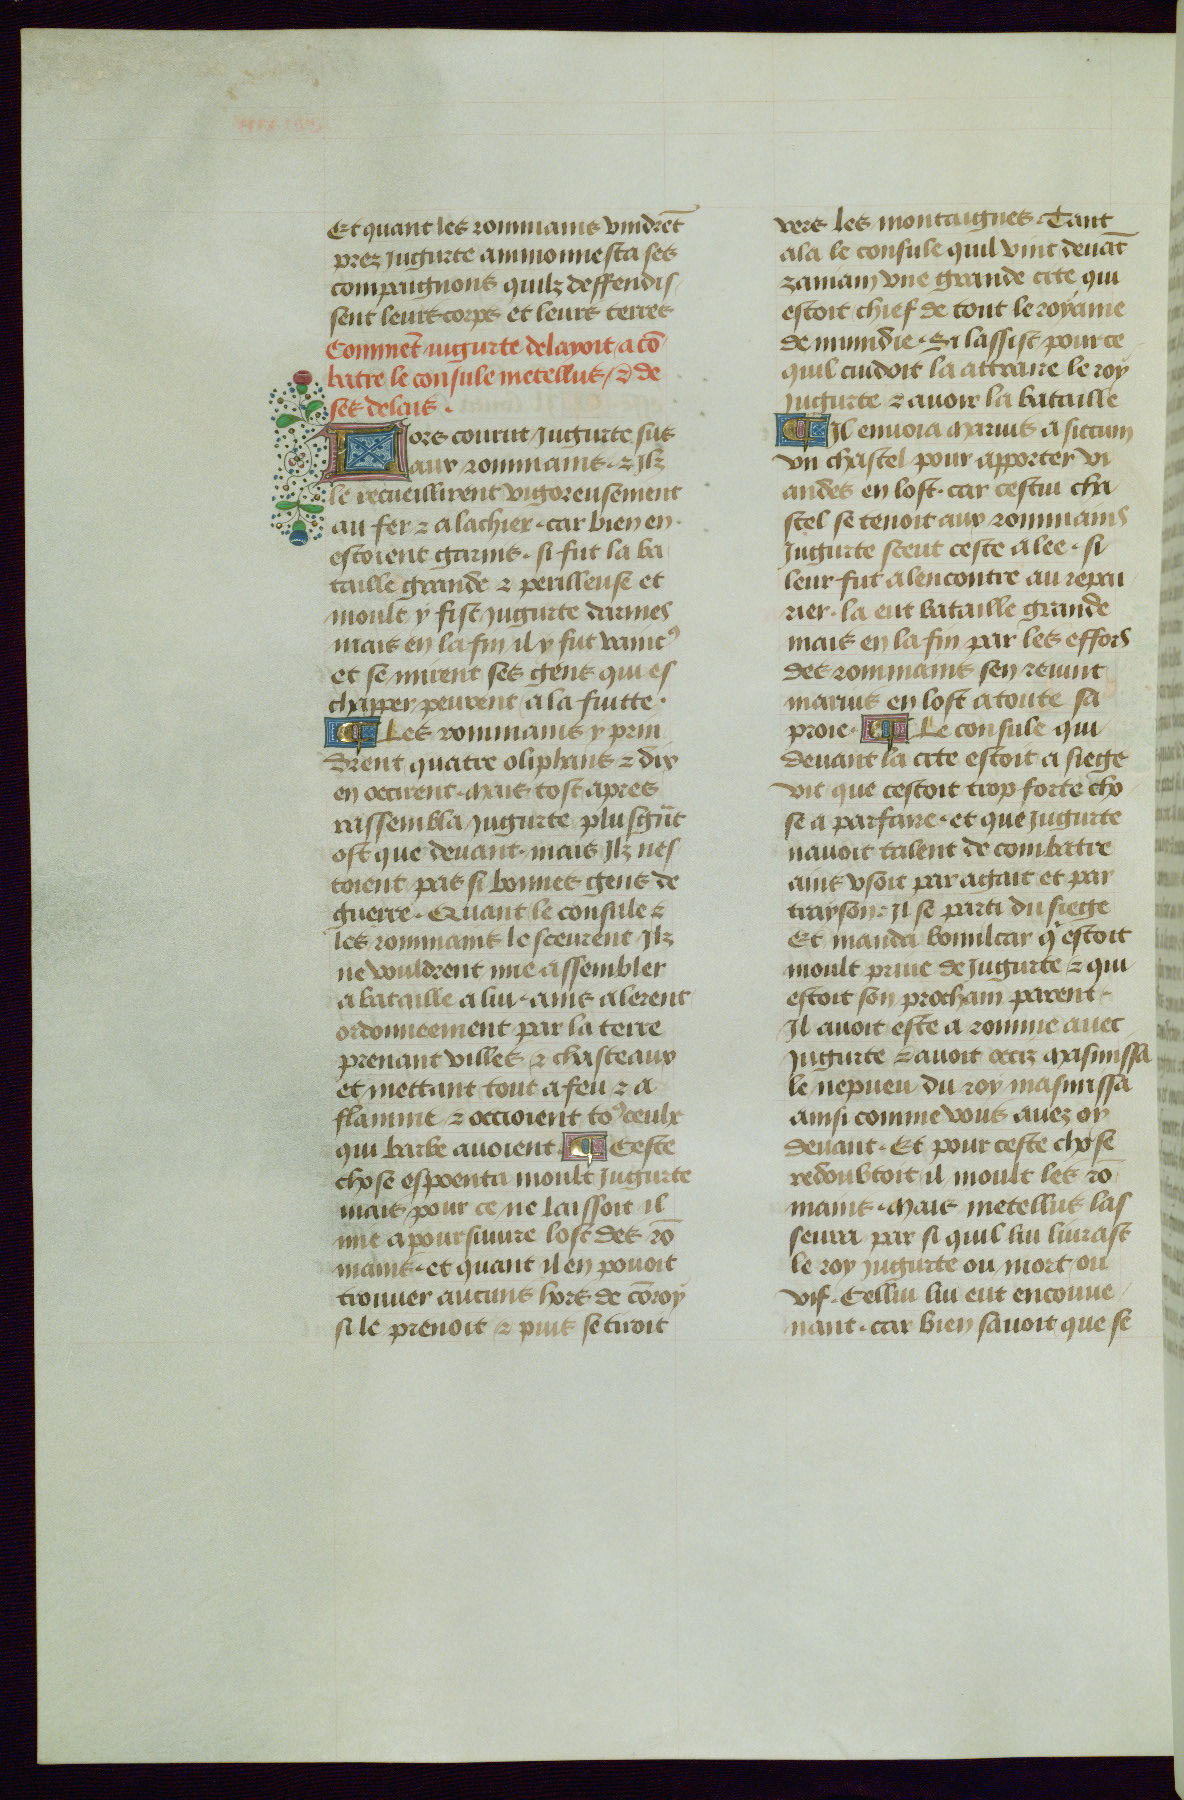 Et quant les rommains vindrēt
prez jugurte ammonnesta ses
compaignons quilz deffendis
sent leurs corps et leurs terres
Commēt iugurte delayoit a cō
batre le consule metellus / ⁊ de
ses delais .
Lors courut jugurte sus
aux rommains . ⁊ jlz
le recueillirent vigoreusement
au fer ⁊ a lachier . car bien en
estoient garnis . si fut la ba
taille grande ⁊ perilleuse et
moult y fist jugurte darmes
mais en la fin il y fut vaincꝰ
et se mirent ses gens qui es
chapper peurent a la fuitte .
¶ Les rommains y prin
drent quatre oliphans ⁊ dix
en occirent . Mais tost apres
rassembla jugurte plus grāt
ost que deuant . mais jlz nes
toient pas si bonnes gens de
guerre . Quant le consule ⁊
les rommains le sceurent jlz
ne vouldrent mie assembler
a bataille a lui . ains alerent
ordonneement par la terre
prenant villes ⁊ chasteaux
et mettant tout a feu ⁊ a
flamme ⁊ occioient toꝰ ceulx
qui barbe auoient . ¶ Ceste
chose espoenta moult jugurte
mais pour ce ne laissoit il
mie a poursiuure lost des rō
mains . et quant il en pouoit
trouuer aucuns hors de cōroy
si le prenoit ⁊ puis se tiroit
vers les montaignes . Tant
ala le consule quil vint deuāt
zamam vne grande cite qui
estoit chief de tout le royame
de numidie . Si lassist pour ce
quil cuidoit la attraire le roy
jugurte ⁊ auoir la bataille
¶ Il enuoia Marius a siccum
vn chastel pour apporter vi
andes en lost . car cestui cha
stel se tenoit aux rommains
Jugurte sceut ceste alee . si
leur fut a lencontre au repai
rier . la eut bataille grande
mais en la fin par les effors
des rommains sen reuint
marius en lost a toute sa
proie . ¶ Le consule qui
deuant la cite estoit a siege
vit que cestoit trop forte cho
se a parfaire . et que Jugurte
nauoit talent de combatre
ains vsoit par agait et par
trayson : Il se parti du siege
Et manda bomilcar qͥ estoit
moult priue de Jugurte ⁊ qui
estoit son prochain parent .
Il auoit este a romme auec
Jugurte ⁊ auoit occiz Masinissa
le nepueu du roy masinissa
ainsi comme vous auez oy
deuant . Et pour ceste chose
redoubtoit il moult les rō
mains . Mais metellus las
seura par si quil lui liurast
le roy jugurte ou mort ou
vif . Cellui lui eut en conue
nant . car bien sauoit que se